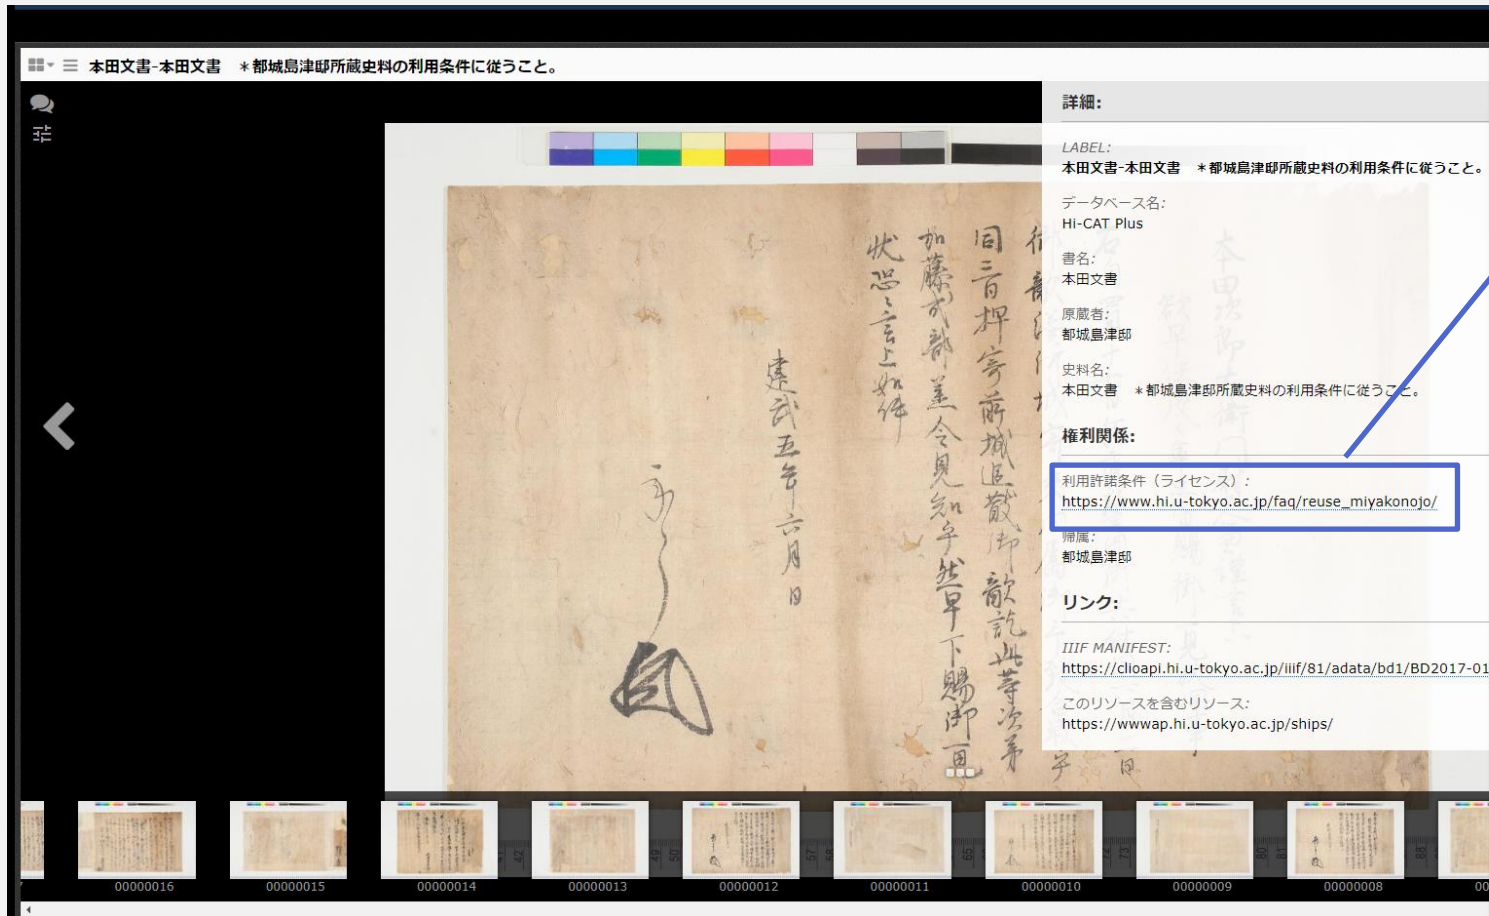 本田文書-本田文書　＊都城島津邸所蔵史料の利用条件に従うこと。
詳細:
LABEL:
本田文書-本田文書　＊都城島津邸所蔵史料の利用条件に従うこと。
データベース名:
Hi-CAT Plus
書名:
本田文書
原蔵者:
都城島津邸
史料名:
本田文書　＊都城島津邸所蔵史料の利用条件に従うこと。
権利関係:
利用許諾条件（ライセンス）:
https://www.hi.u-tokyo.ac.jp/faq/reuse_miyakonojo/
帰属:
都城島津邸
リンク:
IIIF MANIFEST:
https://clioapi.hi.u-tokyo.ac.jp/iiif/81/adata/bd1/BD2017-01
このリソースを含むリソース:
https://wwwap.hi.u-tokyo.ac.jp/ships/
同三百押寄前城追散御敵訖此等次第
加藤式部丞令見知乎然早下賜御一見
状恐々言上如件
建武五年六月日
00000016
00000015
00000014
00000013
00000012
00000011
00000010
00000009
00000008